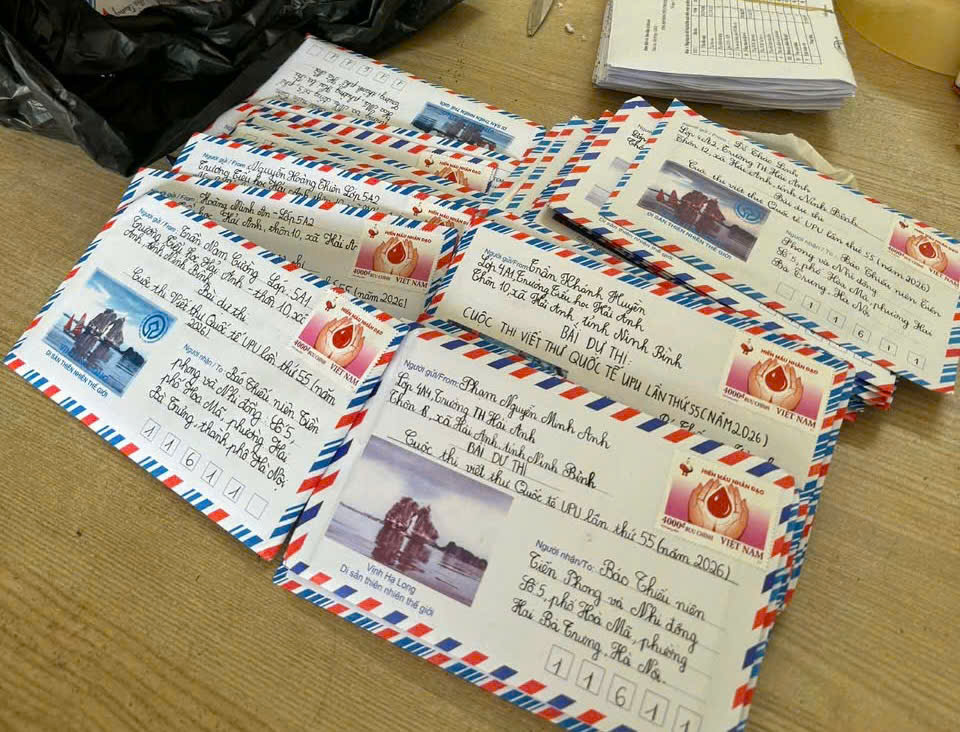 Người gửi/From: Phạm Nguyễn Minh Anh
Lớp 4M, Trường TH Hải Anh
Thôn 18, xã Hải Anh, tỉnh Ninh Bình
BÀI DỰ THI
Cuộc thi viết thư Quốc tế UPU lần thứ 55 (năm 2026)
HIẾN MÁU NHÂN ĐẠO
4000đ BƯU CHÍNH VIỆT NAM
Vịnh Hạ Long
Di sản thiên nhiên thế giới
Người nhận/To: Báo Thiếu niên
Tiền Phong và Nhi đồng
Số 5, phố Hoà Mã, phường
Hai Bà Trưng, Hà Nội.
1 1 6 1 1
Người gửi/From: Trần Khánh Huyền
Lớp 4M, Trường Tiểu học Hải Anh
Thôn 10, xã Hải Anh, tỉnh Ninh Bình
BÀI DỰ THI
CUỘC THI VIẾT THƯ QUỐC TẾ UPU LẦN THỨ 55 (NĂM 2026)
HIẾN MÁU NHÂN ĐẠO
4000đ BƯU CHÍNH VIỆT NAM
Người gửi/From: Trần Nam Cường Lớp 5A1
Trường Tiểu học Hải Anh - thôn 10, xã
Anh, tỉnh Ninh Bình
Bài dự thi
Cuộc thi Viết thư Quốc tế UPU lần thứ 55 (năm
2026)
HIẾN MÁU NHÂN ĐẠO
4000đ BƯU CHÍNH VIỆT NAM
DI SẢN THIÊN NHIÊN THẾ GIỚI
Người nhận/To: Báo Thiếu niên Tiền
phong và Nhi đồng, Số 5,
phố Hoà Mã, phường Hai
Bà Trưng, thành phố Hà Nội.
1 1 6 1 1
Hoàng Minh An - Lớp 5A2
học Hải Anh, thôn 10, xã Hải A
HIẾN MÁU NHÂN ĐẠO
4000đ BƯU CHÍNH VIỆT NAM
55 (năm 2026)
Người gửi/From: Nguyễn Hoàng Thiên Lớp 5A2
Trường Tiểu học Hải Anh
HIẾN MÁU NHÂN ĐẠO
DI SẢN THIÊN NHIÊN THẾ GIỚI
Lớp 4M2, Trường TH Hải Anh
Thôn 12, xã Hải Anh, tỉnh Ninh Bình
Bài dự thi
Cuộc thi viết thư Quốc tế UPU lần thứ 55 (năm 2026)
HIẾN MÁU NHÂN ĐẠO
VIỆT NAM
DI SẢN THIÊN NHIÊN THẾ GIỚI
Người nhận/To: Báo Thiếu niên Tiền
Phong và Nhi đồng
Số 5, phố Hoà Mã, phường Hai
Bà Trưng, Hà Nội
1 1 6 1 1